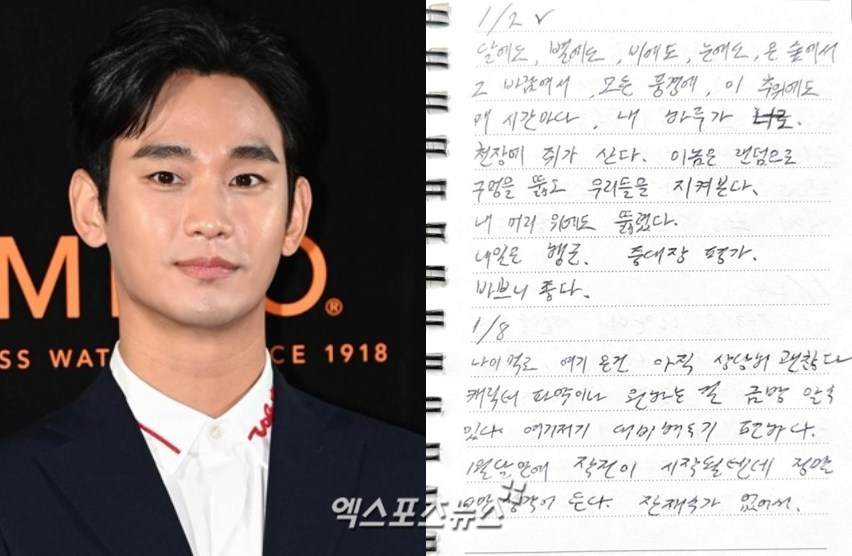 MIDO®
SS WATCH SINCE 1918
1/2 ✓
달에도, 별에도, 비에도, 눈에도, 온 숲에서
그 바람에서, 모든 풍경에, 이 추위에도
매 시간마다, 내 하루가 너로.
천장에 쥐가 산다. 이놈은 랜덤으로
구멍을 뚫고 우리들을 지켜본다.
내 머리 위에도 뚫렸다.
내일은 행군. 중대장 평가.
바쁘니 좋다.
1/8
나이 먹고 여기 온건 아직 상당히 괜찮다
캐릭터 파악이나 원하는 걸 금방 알 수
있다 여기저기 대비해두기 편하다.
1월달 안에 작전이 시작될텐데 정말
생각이 든다. 잔재주가 없어서.
엑스포츠뉴스